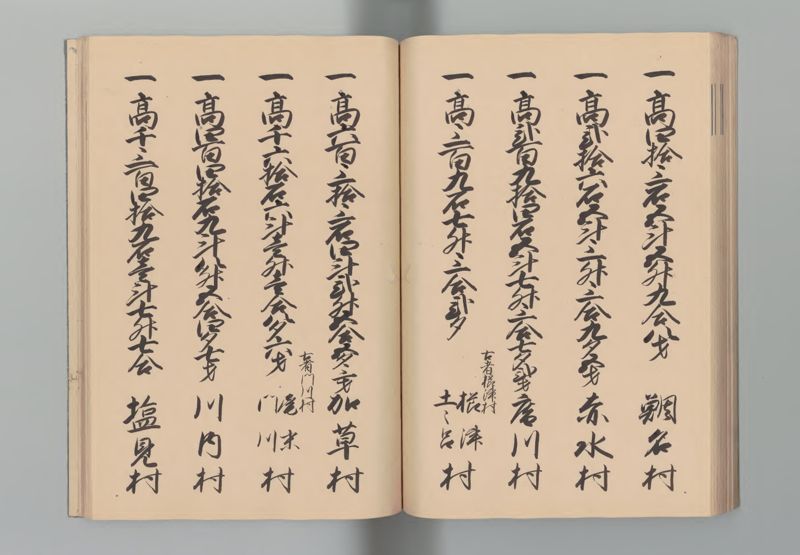 一 高四拾三石五斗五升九合八才 鯛名村
一 高弐拾六石五斗三升三合九夕五才 赤水村
一 高弐百九拾四石五斗七升三合七夕弐才 庵川村
一 高三百九石七升三合弐夕
古者櫛津村
櫛津
土々呂村
一 高六百三拾三石四斗弐升五合五夕三才 加草村
一 高千六拾石六斗壱升壱合八夕六才
古者門川村
尾末
門川村
一 高四百四拾石九斗八升五合四夕七才 川内村
一 高千三百四拾九石壱斗七升七合 塩見村